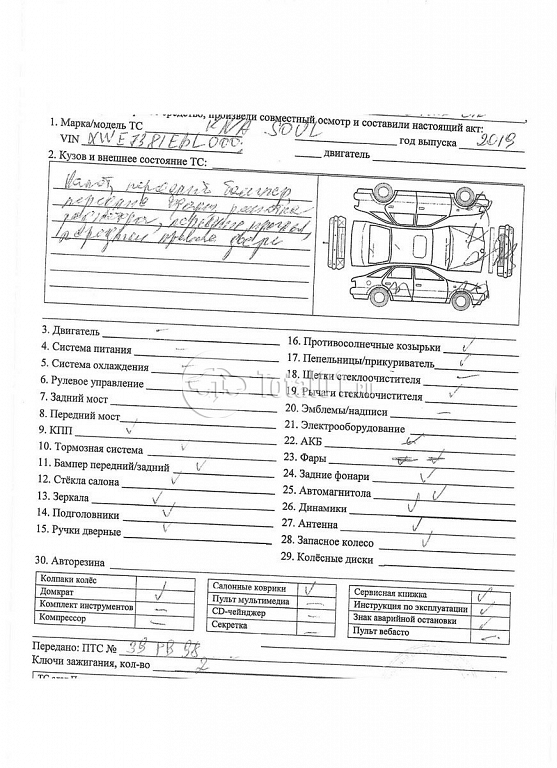 произвели совместный осмотр и составили настоящий акт:
1. Марка/модель ТС KIA SOUL год выпуска 2019
VIN двигатель
2. Кузов и внешнее состояние ТС:
передний бампер
3. Двигатель –
4. Система питания –
5. Система охлаждения
6. Рулевое управление
7. Задний мост
8. Передний мост
9. КПП ✓
10. Тормозная система ✓
11. Бампер передний/задний ✓
12. Стёкла салона ✓
13. Зеркала ✓
14. Подголовники ✓
15. Ручки дверные ✓
16. Противосолнечные козырьки ✓
17. Пепельницы/прикуриватель ✓
18. Щетки стеклоочистителя –
19. Рычаги стеклоочистителя ✓
20. Эмблемы/надписи –
21. Электрооборудование
22. АКБ
23. Фары
24. Задние фонари ✓
25. Автомагнитола ✓
26. Динамики ✓
27. Антенна ✓
28. Запасное колесо ✓
29. Колёсные диски
Total01.ru
30. Авторезина
Колпаки колёс
Домкрат ✓
Комплект инструментов –
Компрессор –
Салонные коврики ✓
Пульт мультимедиа –
CD-чейнджер –
Секретка –
Сервисная книжка ✓
Инструкция по эксплуатации ✓
Знак аварийной остановки ✓
Пульт вебасто –
Передано: ПТС № 39 РВ 98
Ключи зажигания, кол-во 2